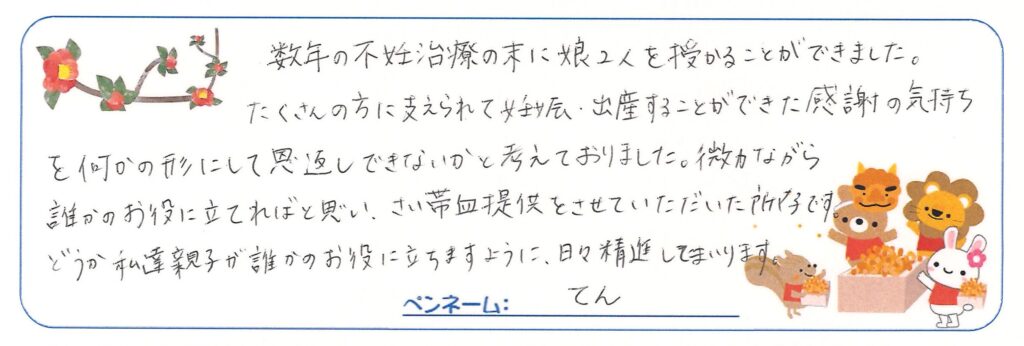 数年の不妊治療の末に娘2人を授かることができました。
たくさんの方に支えられて妊娠・出産することができた感謝の気持ち
を何かの形にして恩返しできないかと考えておりました。微力ながら
誰かのお役に立てればと思い、さい帯血提供をさせていただいた所存です。
どうか私達親子が誰かのお役に立ちますように、日々精進してまいります。
ペンネーム: てん